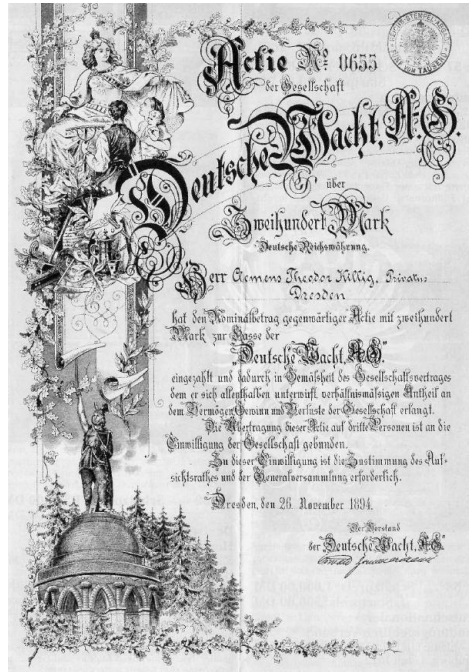 Actie No. 0655
der Gesellschaft
Deutsche Wacht, A.-G.
über
Zweihundert Mark
Deutsche Reichswährung.
Herr Clemens Theodor Killig, Privatus
Dresden
hat den Nominalbetrag gegenwärtiger Actie mit zweihundert
Mark zur Kasse der
"Deutsche Wacht, A.-G."
eingezahlt und dadurch in Gemäßheit des Gesellschaftsvertrages
dem er sich allenthalben unterwirft, verhältnismäsigen Antheil an
dem Vermögen, Gewinn und Verluste der Gesellschaft erlangt.
Die Übertragung dieser Actie auf dritte Personen ist an die
Einwilligung der Gesellschaft gebunden.
Zu dieser Einwilligung ist die Zustimmung des Auf-
sichtsrathes und der Generalversammlung erforderlich.
Dresden, den 26. November 1894.
Der Vorstand
der "Deutsche Wacht, A.-G."